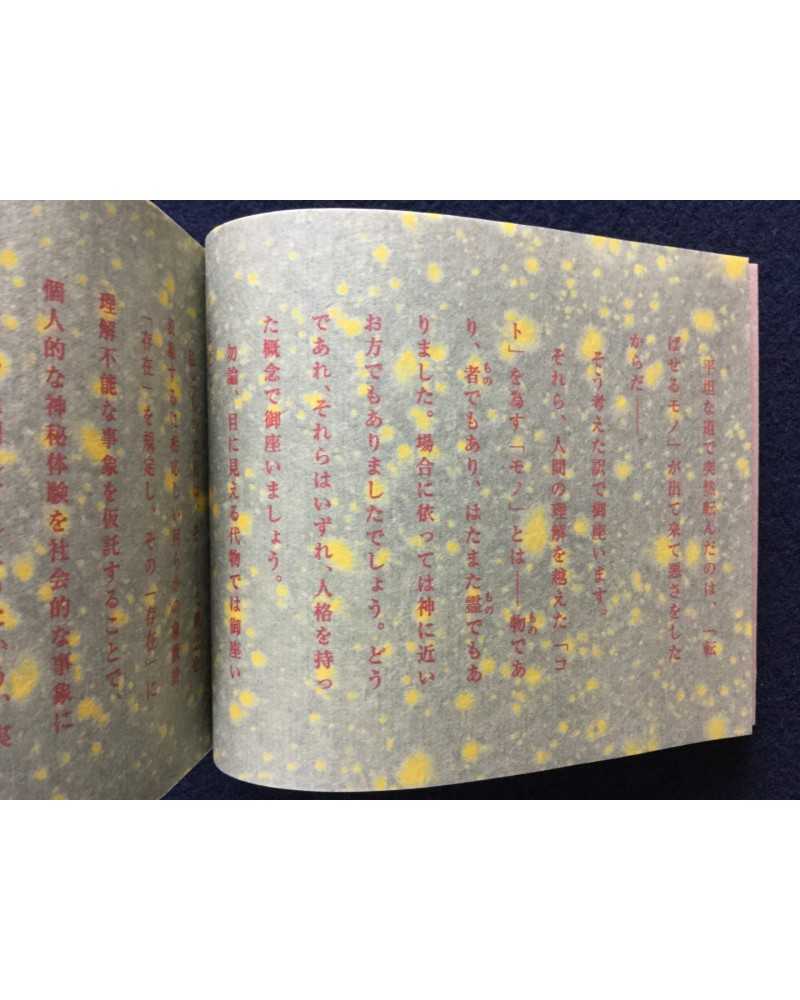 平坦な道で突然転んだのは、「転
ばせるモノ」が出て来て悪さをした
からだ――。
そう考えた訳で御座います。
それら、人間の理解を越えた「コ
ト」を為す「モノ」とは――物であ
り、者でもあり、はたまた霊でもあ
りました。場合に依っては神に近い
お方でもありましたでしょう。どう
であれ、それらはいずれ、人格を持っ
た概念で御座いましょう。
勿論、目に見える代物では御座い
「存在」を規定し、その「存在」に
理解不能な事象を仮託することで、
個人的な神秘体験を社会的な事象に